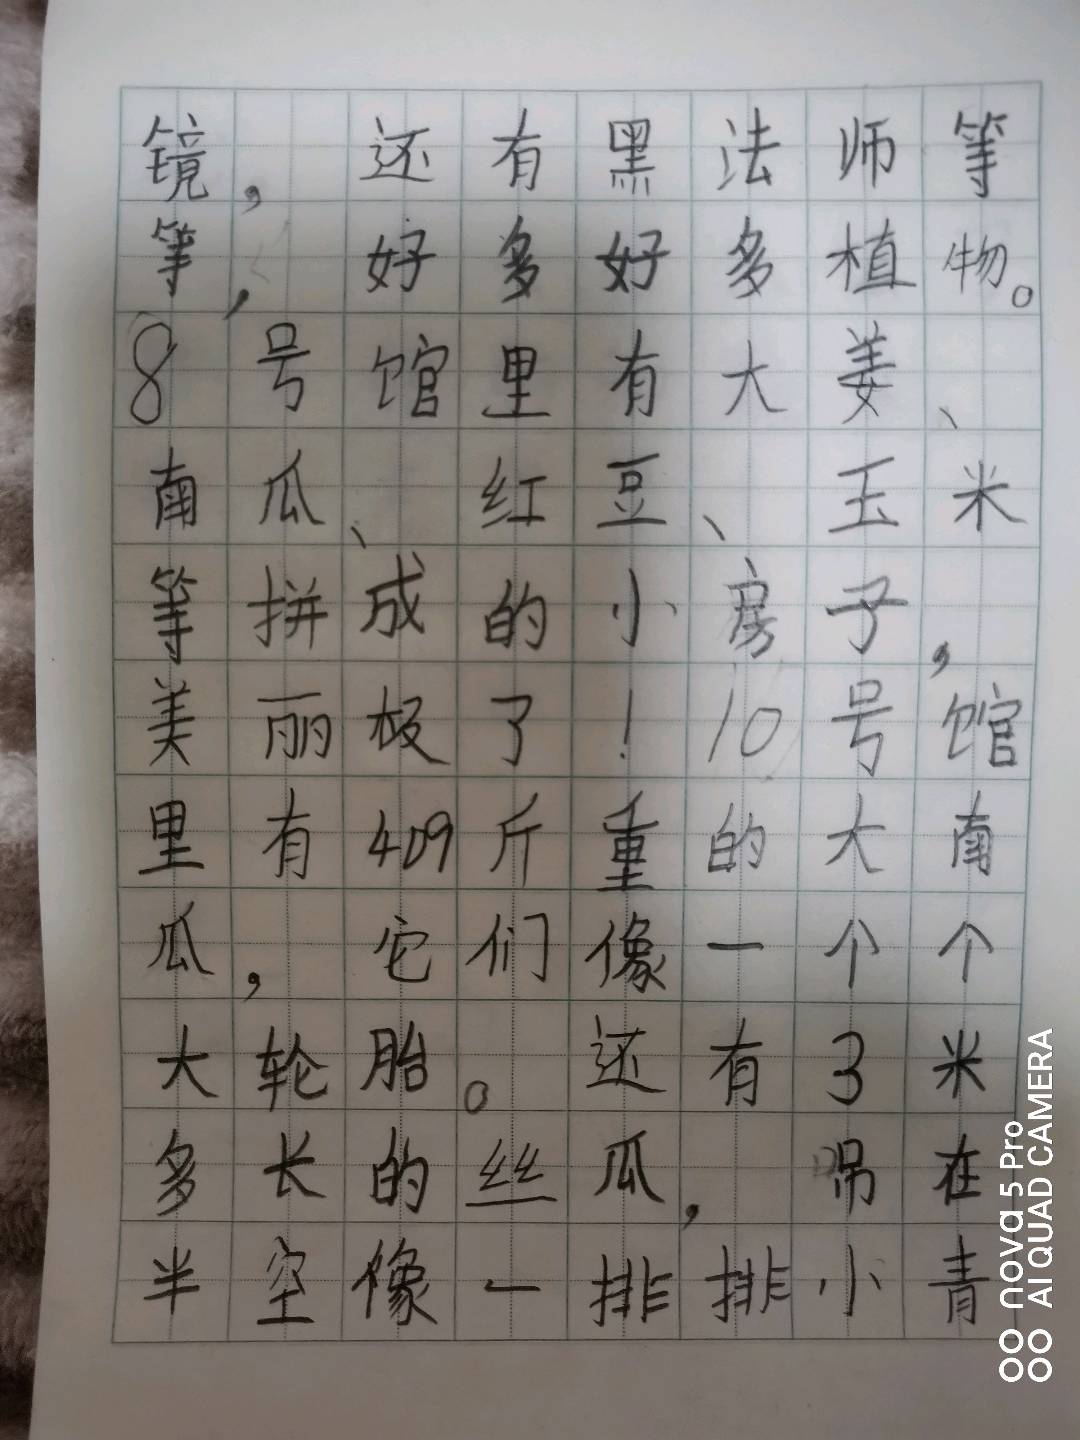 镜，还有黑法师等
等，好多好多植物。
8号馆里有大姜、
南瓜、红豆、玉米
等拼成的小房子，
美丽极了！10号馆
里有409斤重的大南
瓜，它们像一个个
大轮胎。还有3米
多长的丝瓜，吊在
半空像一排排小青
nova 5 Pro
AI QUAD CAMERA